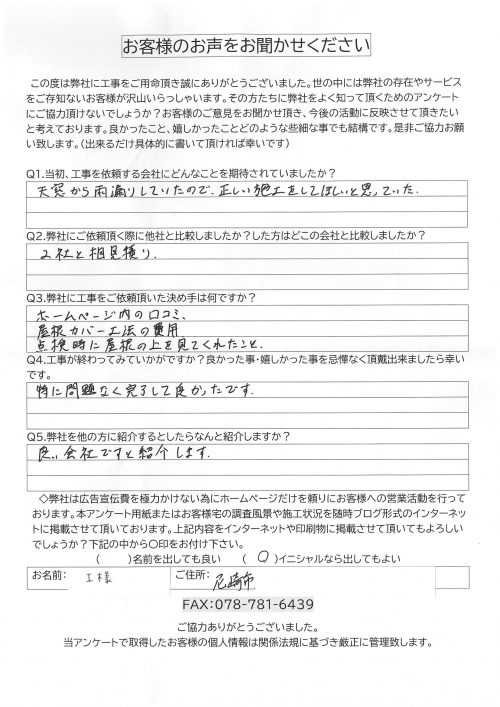 お客様のお声をお聞かせください
この度は弊社に工事をご用命頂き誠にありがとうございました。世の中には弊社の存在やサービス
をご存知ないお客様が沢山いらっしゃいます。その方たちに弊社をよく知って頂くためのアンケート
にご協力頂けないでしょうか？お客様のご意見をお聞かせ頂き、今後の活動に反映させて頂きたい
と考えております。良かったこと、嬉しかったことどのような些細な事でも結構です。是非ご協力お願
い致します。（出来るだけ具体的に書いて頂ければ幸いです）
Q1.当初、工事を依頼する会社にどんなことを期待されていましたか？
天窓から雨漏りしていたので、正しい施工をしてほしいと思っていた。
Q2.弊社にご依頼頂く際に他社と比較しましたか？した方はどこの会社と比較しましたか？
2社と相見積り。
Q3.弊社に工事をご依頼頂いた決め手は何ですか？
ホームページ内の口コミ、
屋根カバー工法の費用
点検時に屋根の上を見てくれたこと、
Q4.工事が終わってみていかがですか？良かった事・嬉しかった事を忌憚なく頂戴出来ましたら幸い
です。
特に問題なく完了して良かったです。
Q5.弊社を他の方に紹介するとしたらなんと紹介しますか？
良い会社ですと紹介します。
◇弊社は広告宣伝費を極力かけない為にホームページだけを頼りにお客様への営業活動を行って
おります。本アンケート用紙またはお客様宅の調査風景や施工状況を随時ブログ形式のインターネッ
トに掲載させて頂いております。上記内容をインターネットや印刷物に掲載させて頂いてもよろしい
でしょうか？下記の中から〇印をお付け下さい。
（　　）名前を出しても良い　（ 〇 ）イニシャルなら出してもよい
お名前： I様 ご住所： 尼崎市
FAX:078-781-6439
ご協力ありがとうございました。
当アンケートで取得したお客様の個人情報は関係法規に基づき厳正に管理致します。